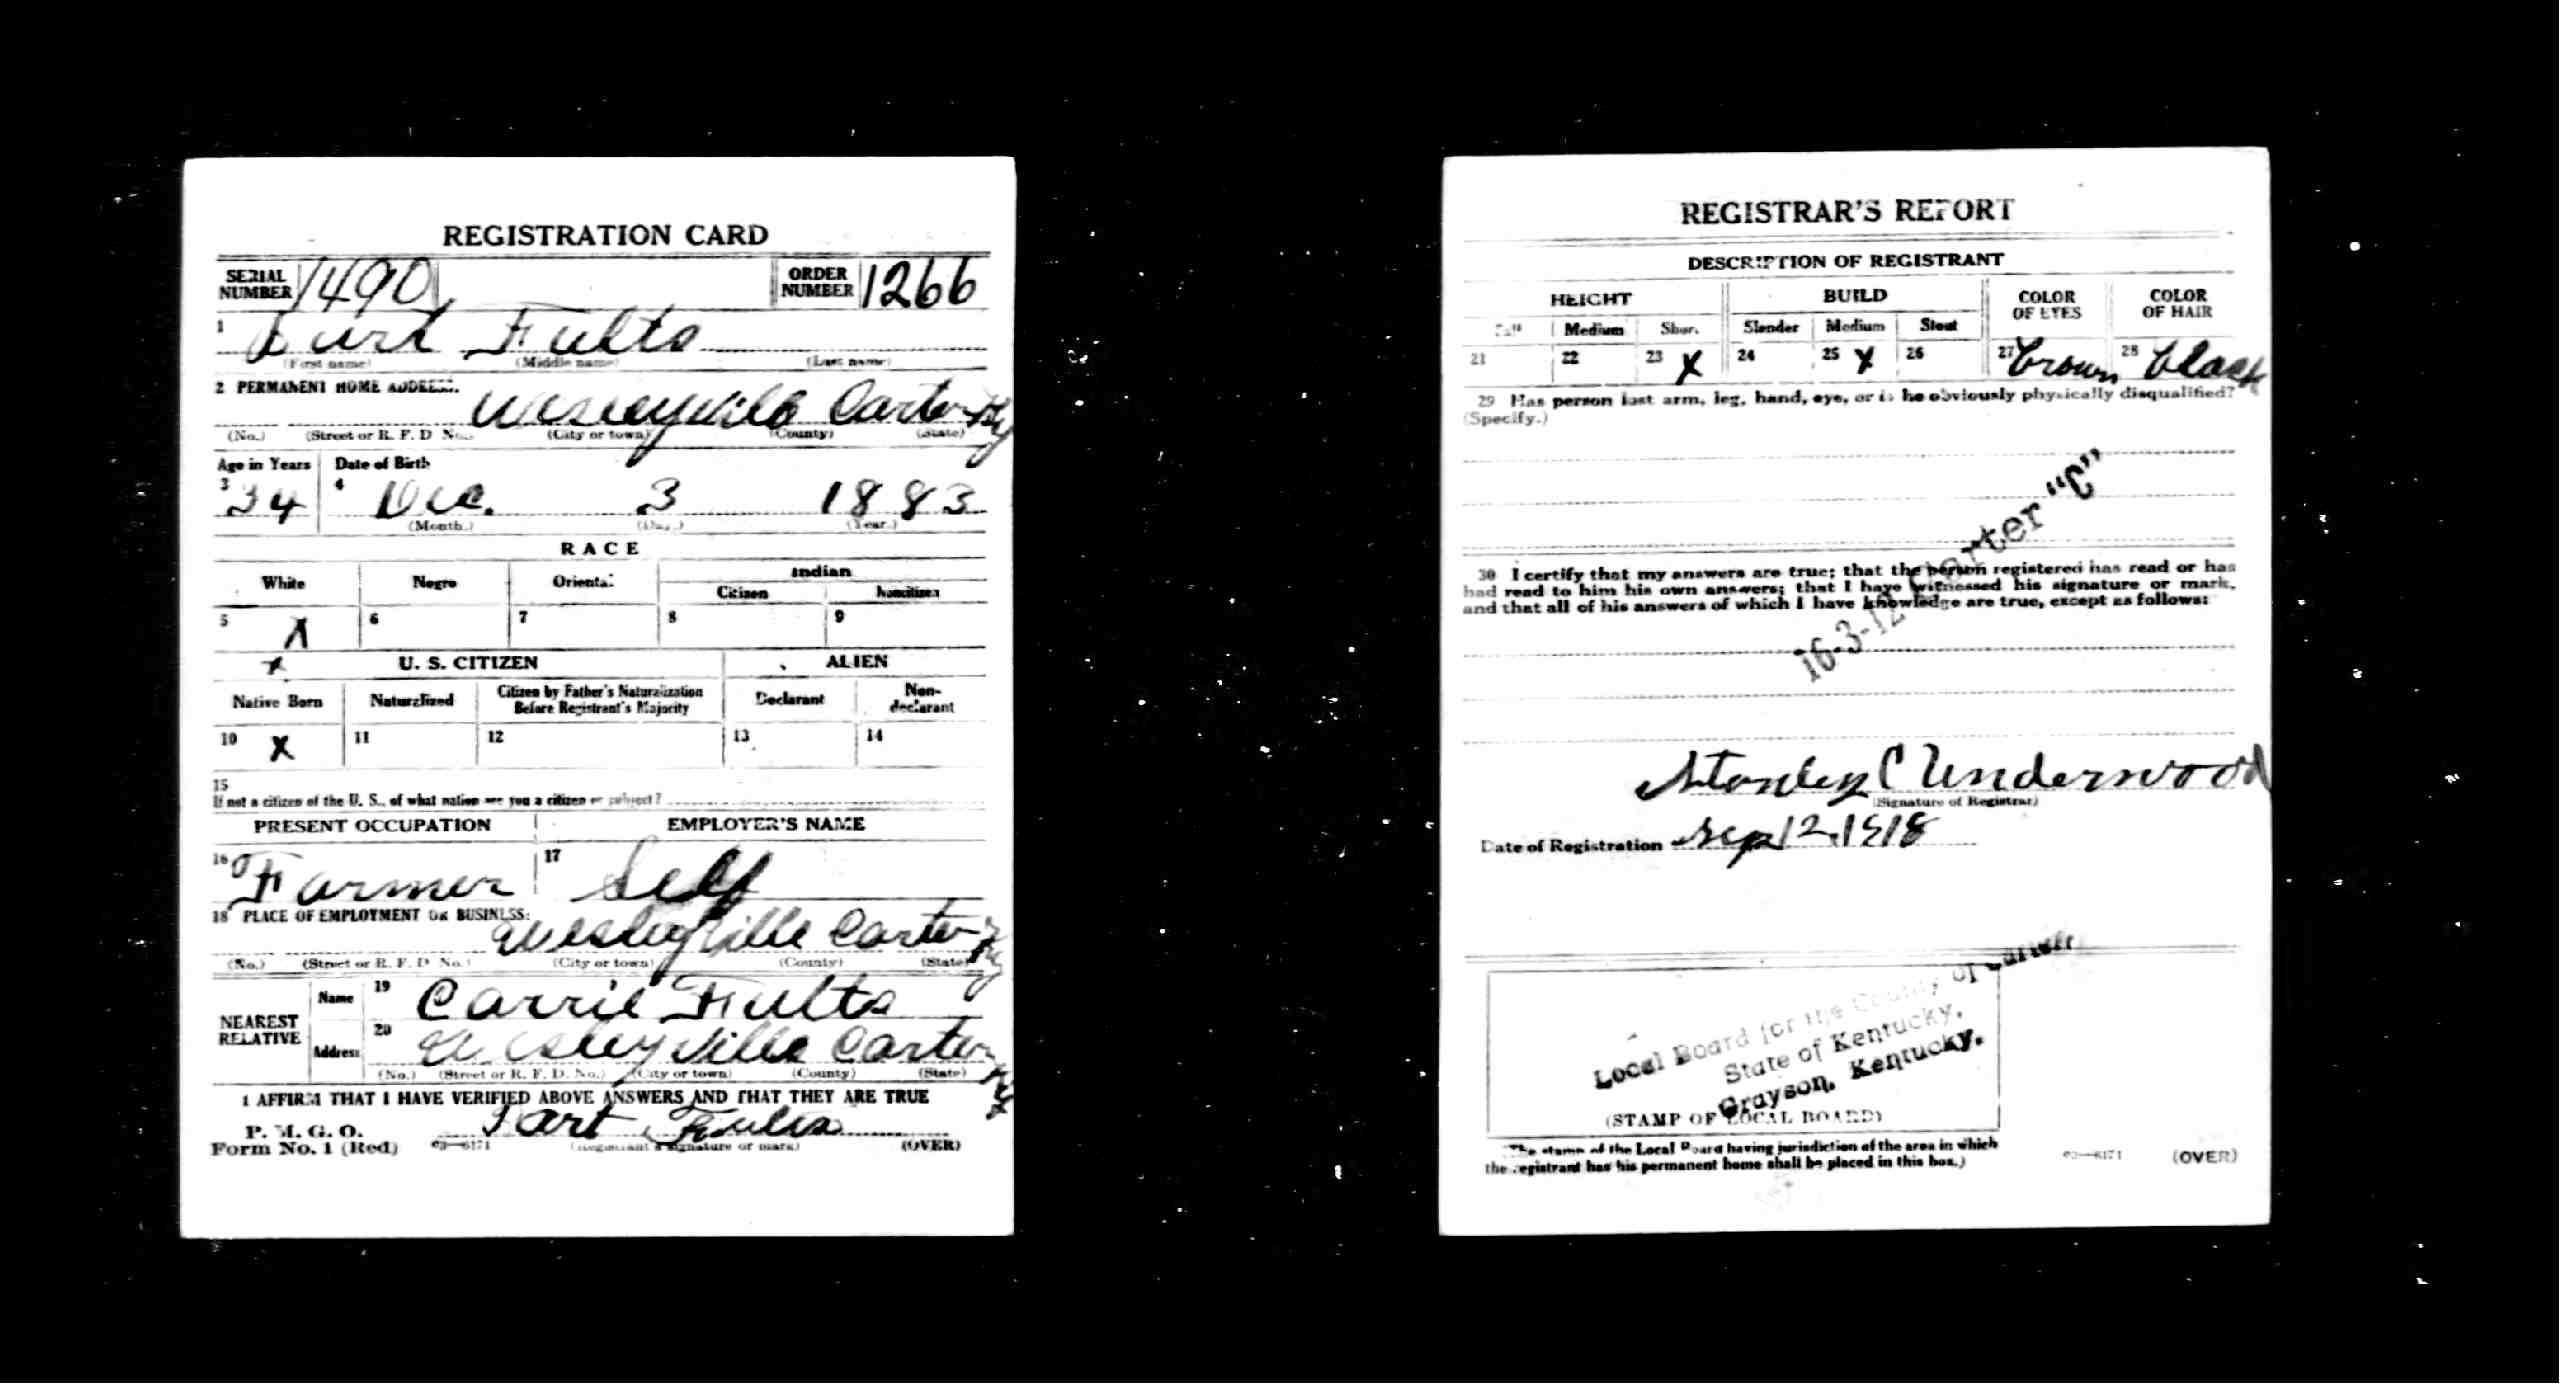 REGISTRATION CARD
SERIAL NUMBER 1490 ORDER NUMBER 1266
1 Fults
(First name) (Middle name) (Last name)
2 PERMANENT HOME ADDRESS.
Wesleyville Carter Ky
(No.) (Street or R. F. D No.) (City or town) (County) (State)
Age in Years Date of Birth
3 34 4 Dec. 3 1883
(Month.) (Day.) (Year.)
RACE
White Negro Oriental Indian
Citizen Noncitizen
5 X 6 7 8 9
X U. S. CITIZEN ALIEN
Native Born Naturalized Citizen by Father's Naturalization Before Registrant's Majority Declarant Non-declarant
10 X 11 12 13 14
15
If not a citizen of the U. S., of what nation are you a citizen or subject?
PRESENT OCCUPATION EMPLOYER'S NAME
16 Farmer 17 Self
18 PLACE OF EMPLOYMENT OR BUSINESS:
Wesleyville Carter Ky
(No.) (Street or R. F. D No.) (City or town) (County) (State)
NEAREST RELATIVE Name 19 Carrie Fults
Address 20 Wesleyville Carter Ky
(No.) (Street or R. F. D. No.) (City or town) (County) (State)
I AFFIRM THAT I HAVE VERIFIED ABOVE ANSWERS AND THAT THEY ARE TRUE
P. M. G. O.
Form No. 1 (Red) 03—6171 Fults (Registrant's signature or mark) (OVER)
REGISTRAR'S REPORT
DESCRIPTION OF REGISTRANT
HEIGHT BUILD COLOR OF EYES COLOR OF HAIR
Tall Medium Short Slender Medium Stout
21 22 23 X 24 25 X 26 27 brown 28 black
29 Has person lost arm, leg, hand, eye, or is he obviously physically disqualified?
(Specify.)
16-3-12 Carter "C"
30 I certify that my answers are true; that the person registered has read or has
had read to him his own answers; that I have witnessed his signature or mark,
and that all of his answers of which I have knowledge are true, except as follows:
Stanley C Underwood
(Signature of Registrar)
Date of Registration Sep 12, 1918
Local Board for the County of Carter
State of Kentucky,
Grayson, Kentucky.
(STAMP OF LOCAL BOARD)
(The stamp of the Local Board having jurisdiction of the area in which
the registrant has his permanent home shall be placed in this box.)
03—6171 (OVER)